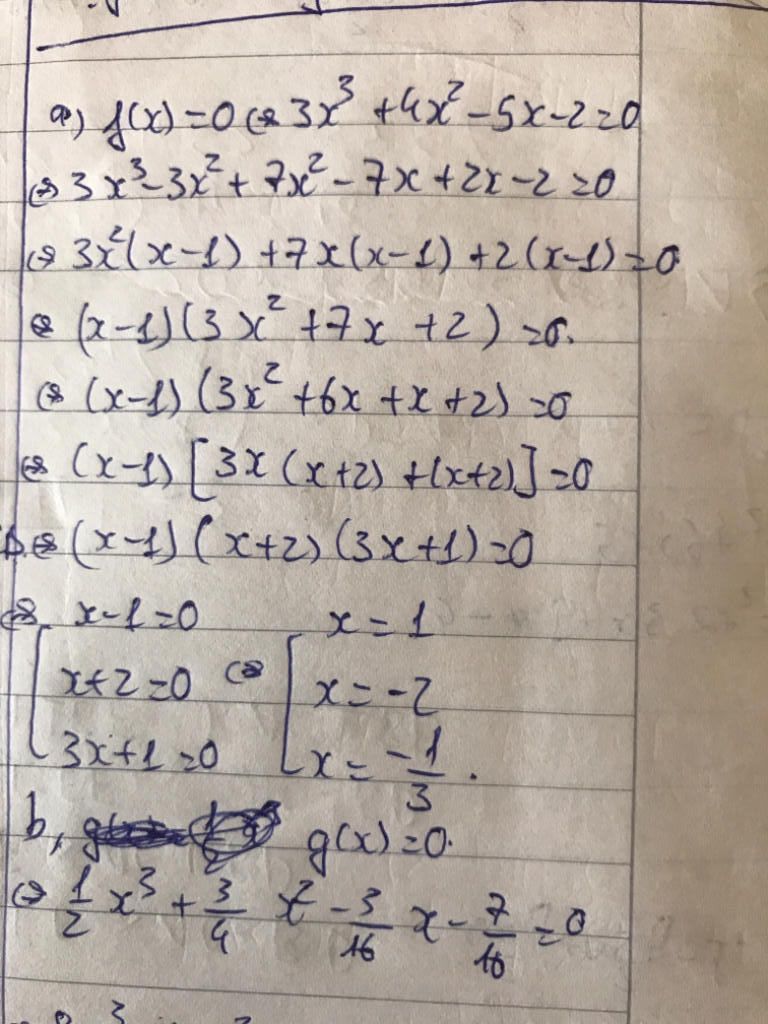 a) f(x)=0 ⇔ 3x³ +4x² -5x-2=0
⇔ 3x³-3x²+7x²-7x+2x-2=0
⇔ 3x²(x-1)+7x(x-1)+2(x-1)=0
⇔ (x-1)(3x²+7x+2)=0.
⇔ (x-1)(3x²+6x+x+2)=0
⇔ (x-1)[3x(x+2)+(x+2)]=0
⇔ (x-1)(x+2)(3x+1)=0
⇔ [x-1=0 x=1
x+2=0 ⇔ [x=-2
3x+1=0 x=-1/3.
b, g(x)=0.
⇔ 1/2 x³ + 3/4 x² - 3/16 x - 7/16 =0